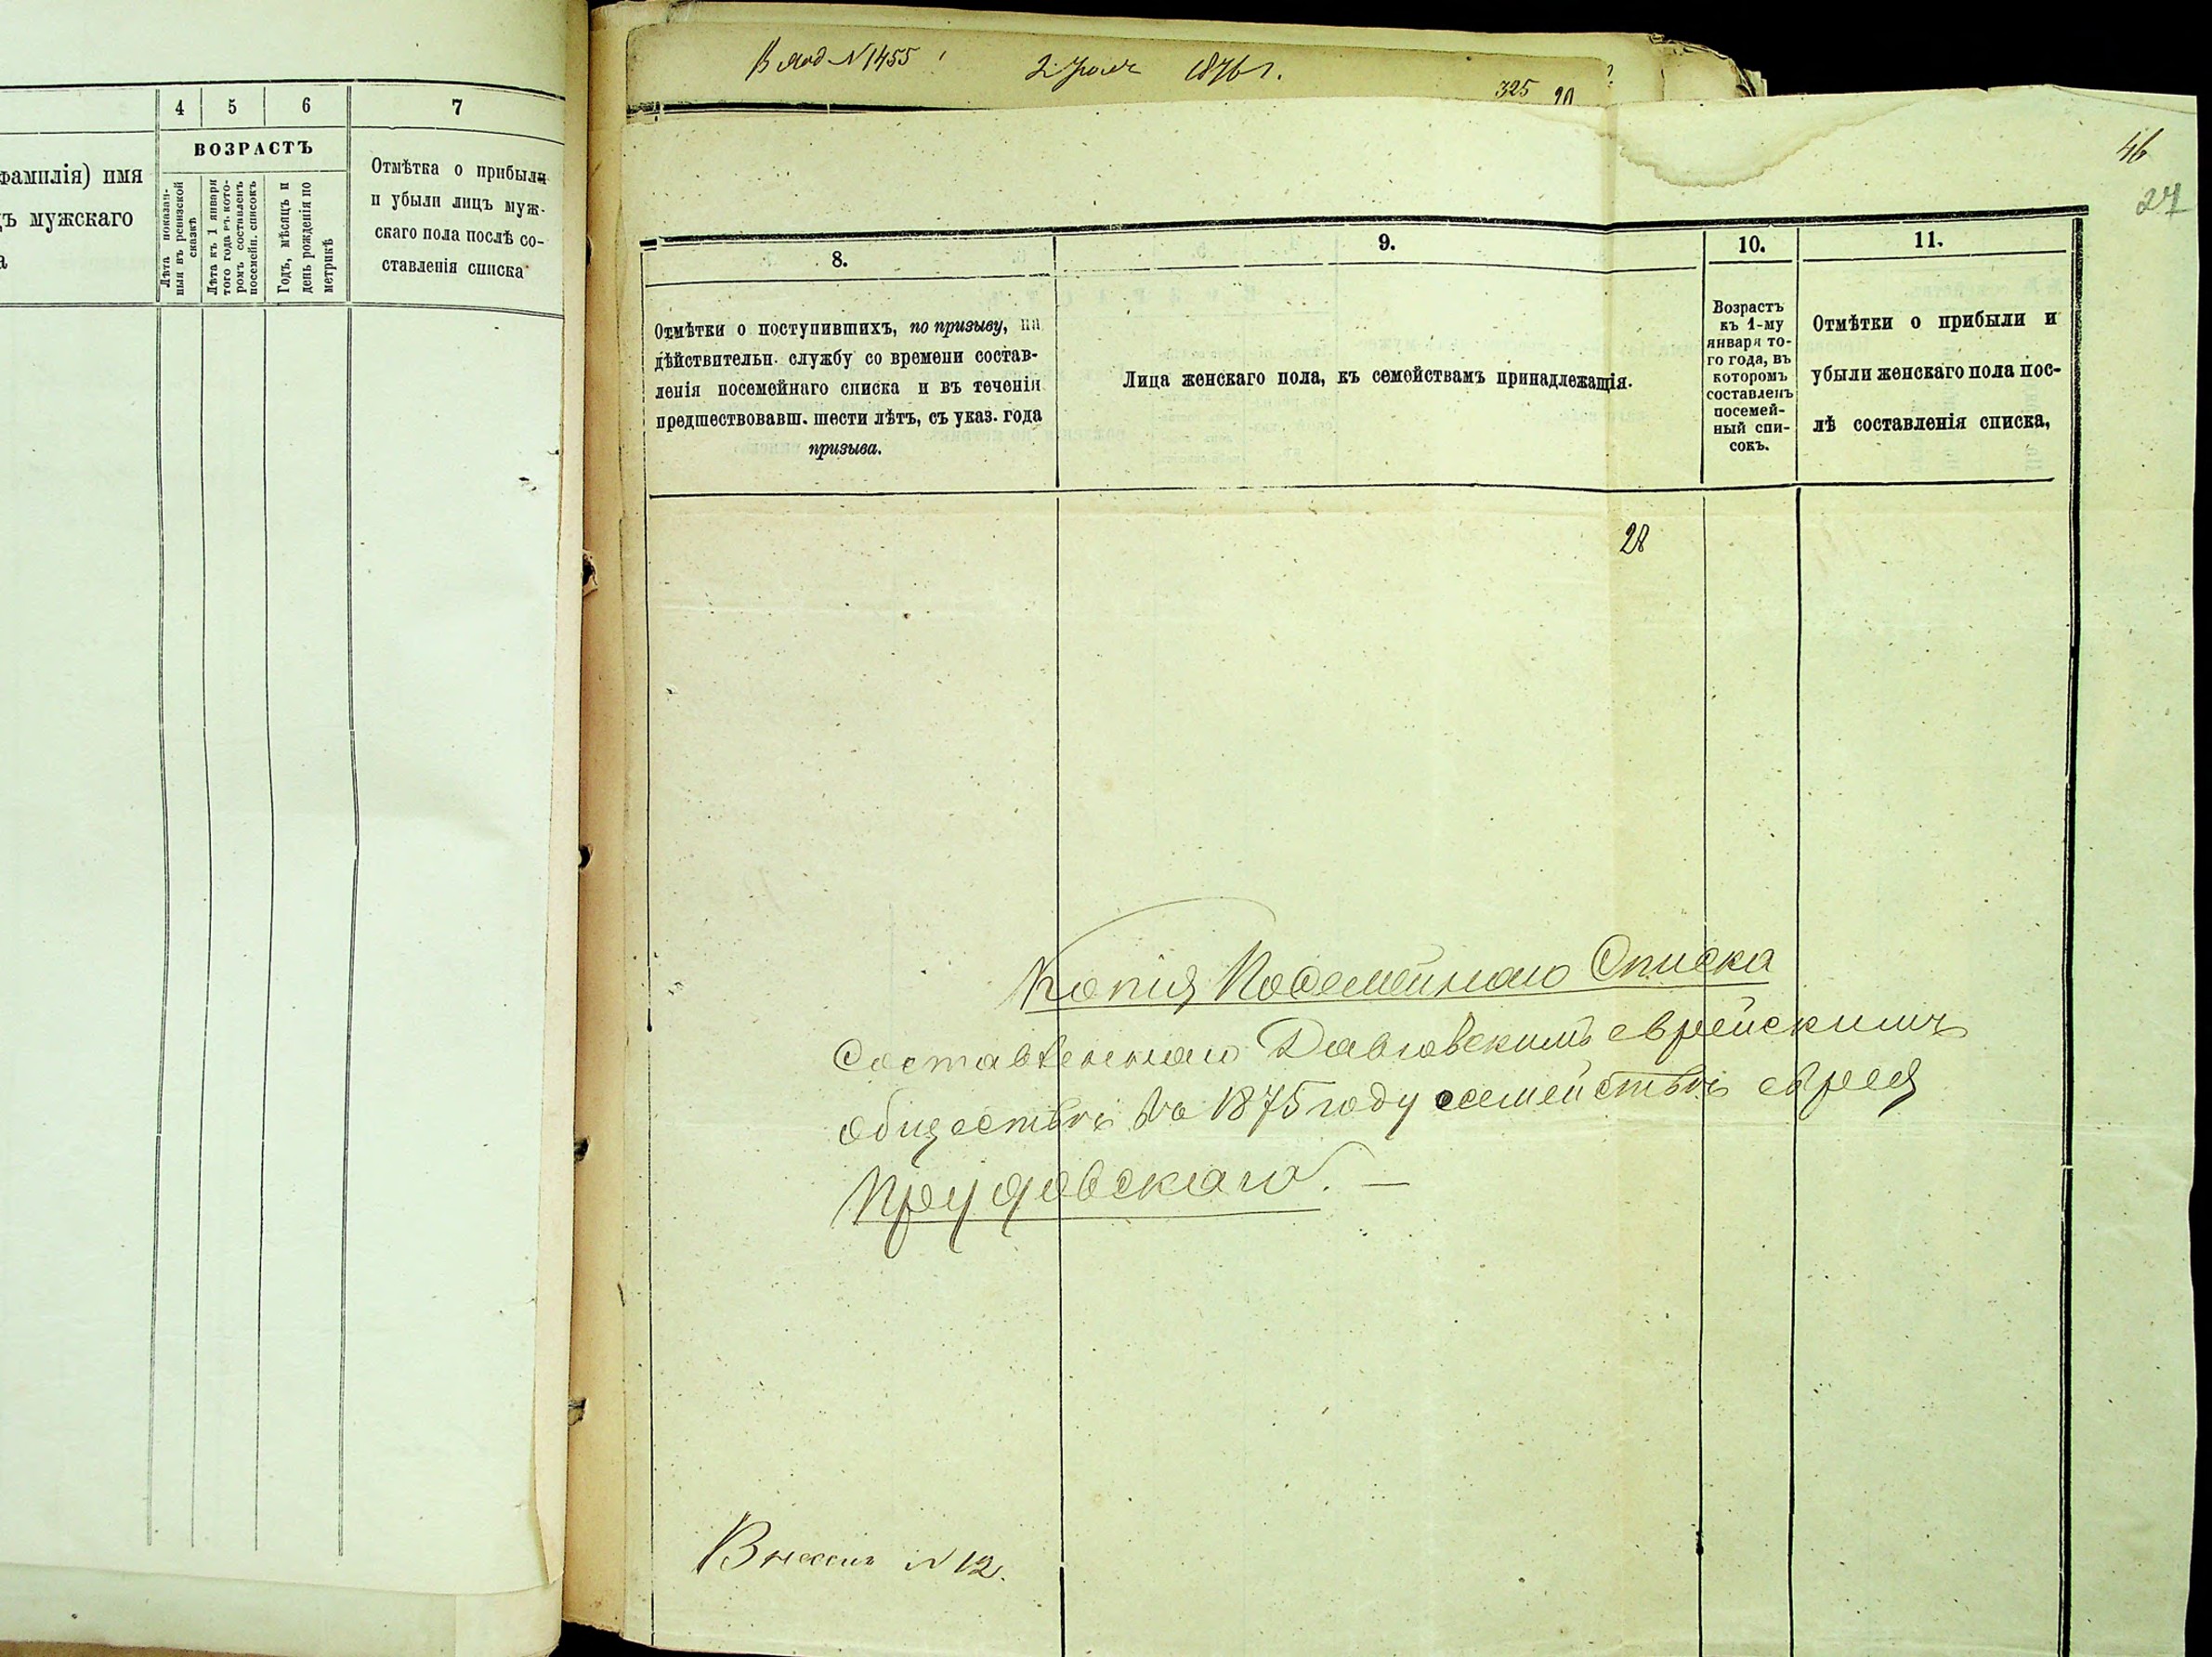 4 5 6 7
ВОЗРАСТЪ
фамилія) имя
ъ мужскаго
а
Лѣта показан-
ныя въ ревизской
сказкѣ
Лѣта къ 1 января
того года въ кото-
ромъ составленъ
посемейн. списокъ
Годъ, мѣсяцъ и
день рожденія по
метрикѣ
Отмѣтка о прибыли
и убыли лицъ муж-
скаго пола послѣ со-
ставленія списка
N 1455
2 1876 г.
325 20
46
27
8. 9. 10. 11.
Отмѣтки о поступившихъ, по призыву, на
дѣйствительн. службу со времени состав-
ленія посемейнаго списка и въ теченіи
предшествовавш. шести лѣтъ, съ указ. года
призыва.
Лица женскаго пола, къ семействамъ принадлежащія.
Возрастъ
къ 1-му
января то-
го года, въ
которомъ
составленъ
посемей-
ный спи-
сокъ.
Отмѣтки о прибыли и
убыли женскаго пола пос-
лѣ составленія списка,
28
Копія Посемейнаго Списка
Составленнаго еврейскимъ
обществомъ въ 1875 году семейства еврея
Прудовскаго. —
N 12.